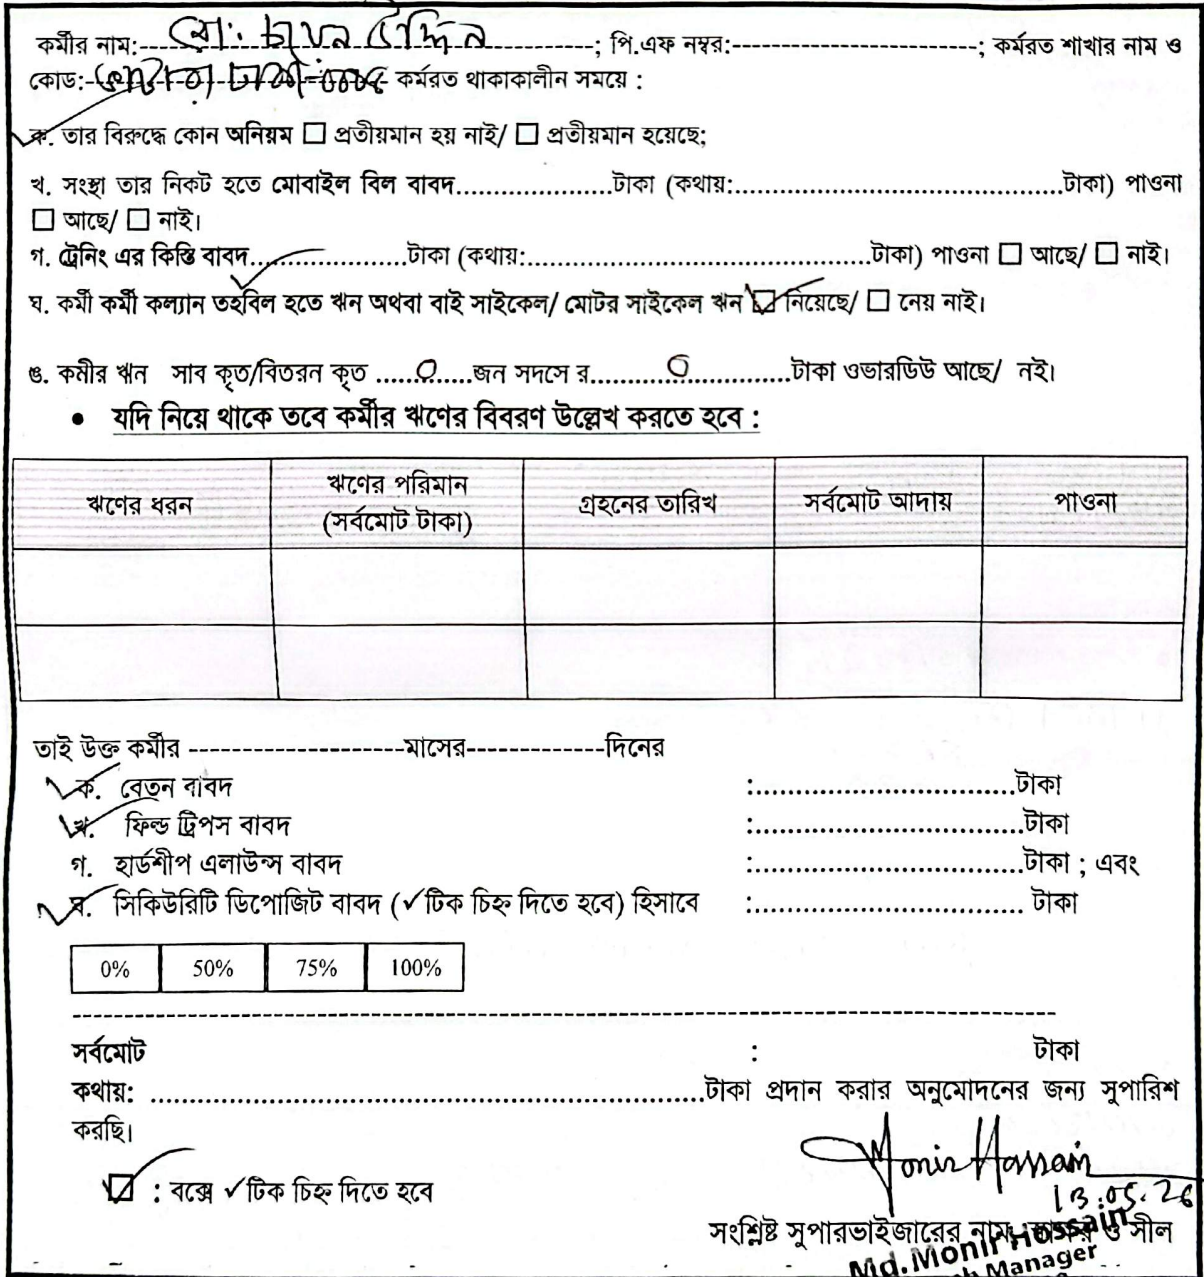 কর্মীর নাম:- মো: ; পি.এফ নম্বর:-------------------------; কর্মরত শাখার নাম ও
কোড:- কর্মরত থাকাকালীন সময়ে :
ক. তার বিরুদ্ধে কোন অনিয়ম ☐ প্রতীয়মান হয় নাই/ ☐ প্রতীয়মান হয়েছে;
খ. সংস্থা তার নিকট হতে মোবাইল বিল বাবদ..................টাকা (কথায়:......................................টাকা) পাওনা
☐ আছে/ ☐ নাই।
গ. ট্রেনিং এর কিস্তি বাবদ..................টাকা (কথায়:........................................টাকা) পাওনা ☐ আছে/ ☐ নাই।
ঘ. কর্মী কর্মী কল্যান তহবিল হতে ঋন অথবা বাই সাইকেল/ মোটর সাইকেল ঋন ☑ নিয়েছে/ ☐ নেয় নাই।
ঙ. কমীর ঋন সাব কৃত/বিতরন কৃত ......0......জন সদসে র.........0............টাকা ওভারডিউ আছে/ নই।
• যদি নিয়ে থাকে তবে কর্মীর ঋণের বিবরণ উল্লেখ করতে হবে :
ঋণের ধরন
ঋণের পরিমান
(সর্বমোট টাকা)
গ্রহনের তারিখ
সর্বমোট আদায়
পাওনা
তাই উক্ত কর্মীর ---------------------মাসের-------------দিনের
✓ ক. বেতন বাবদ :................................টাকা
✓ খ. ফিল্ড ট্রিপস বাবদ :................................টাকা
গ. হার্ডশীপ এলাউন্স বাবদ :................................টাকা ; এবং
✓ ঘ. সিকিউরিটি ডিপোজিট বাবদ (✓টিক চিহ্ন দিতে হবে) হিসাবে :................................ টাকা
0% 50% 75% 100%
সর্বমোট : টাকা
কথায়: ..................................................................টাকা প্রদান করার অনুমোদনের জন্য সুপারিশ
করছি।
☑ : বক্সে ✓টিক চিহ্ন দিতে হবে
Monir Hossain
13.05.26
সংশ্লিষ্ট সুপারভাইজারের নাম, ও সীল
Md. Monir Hossain
Manager